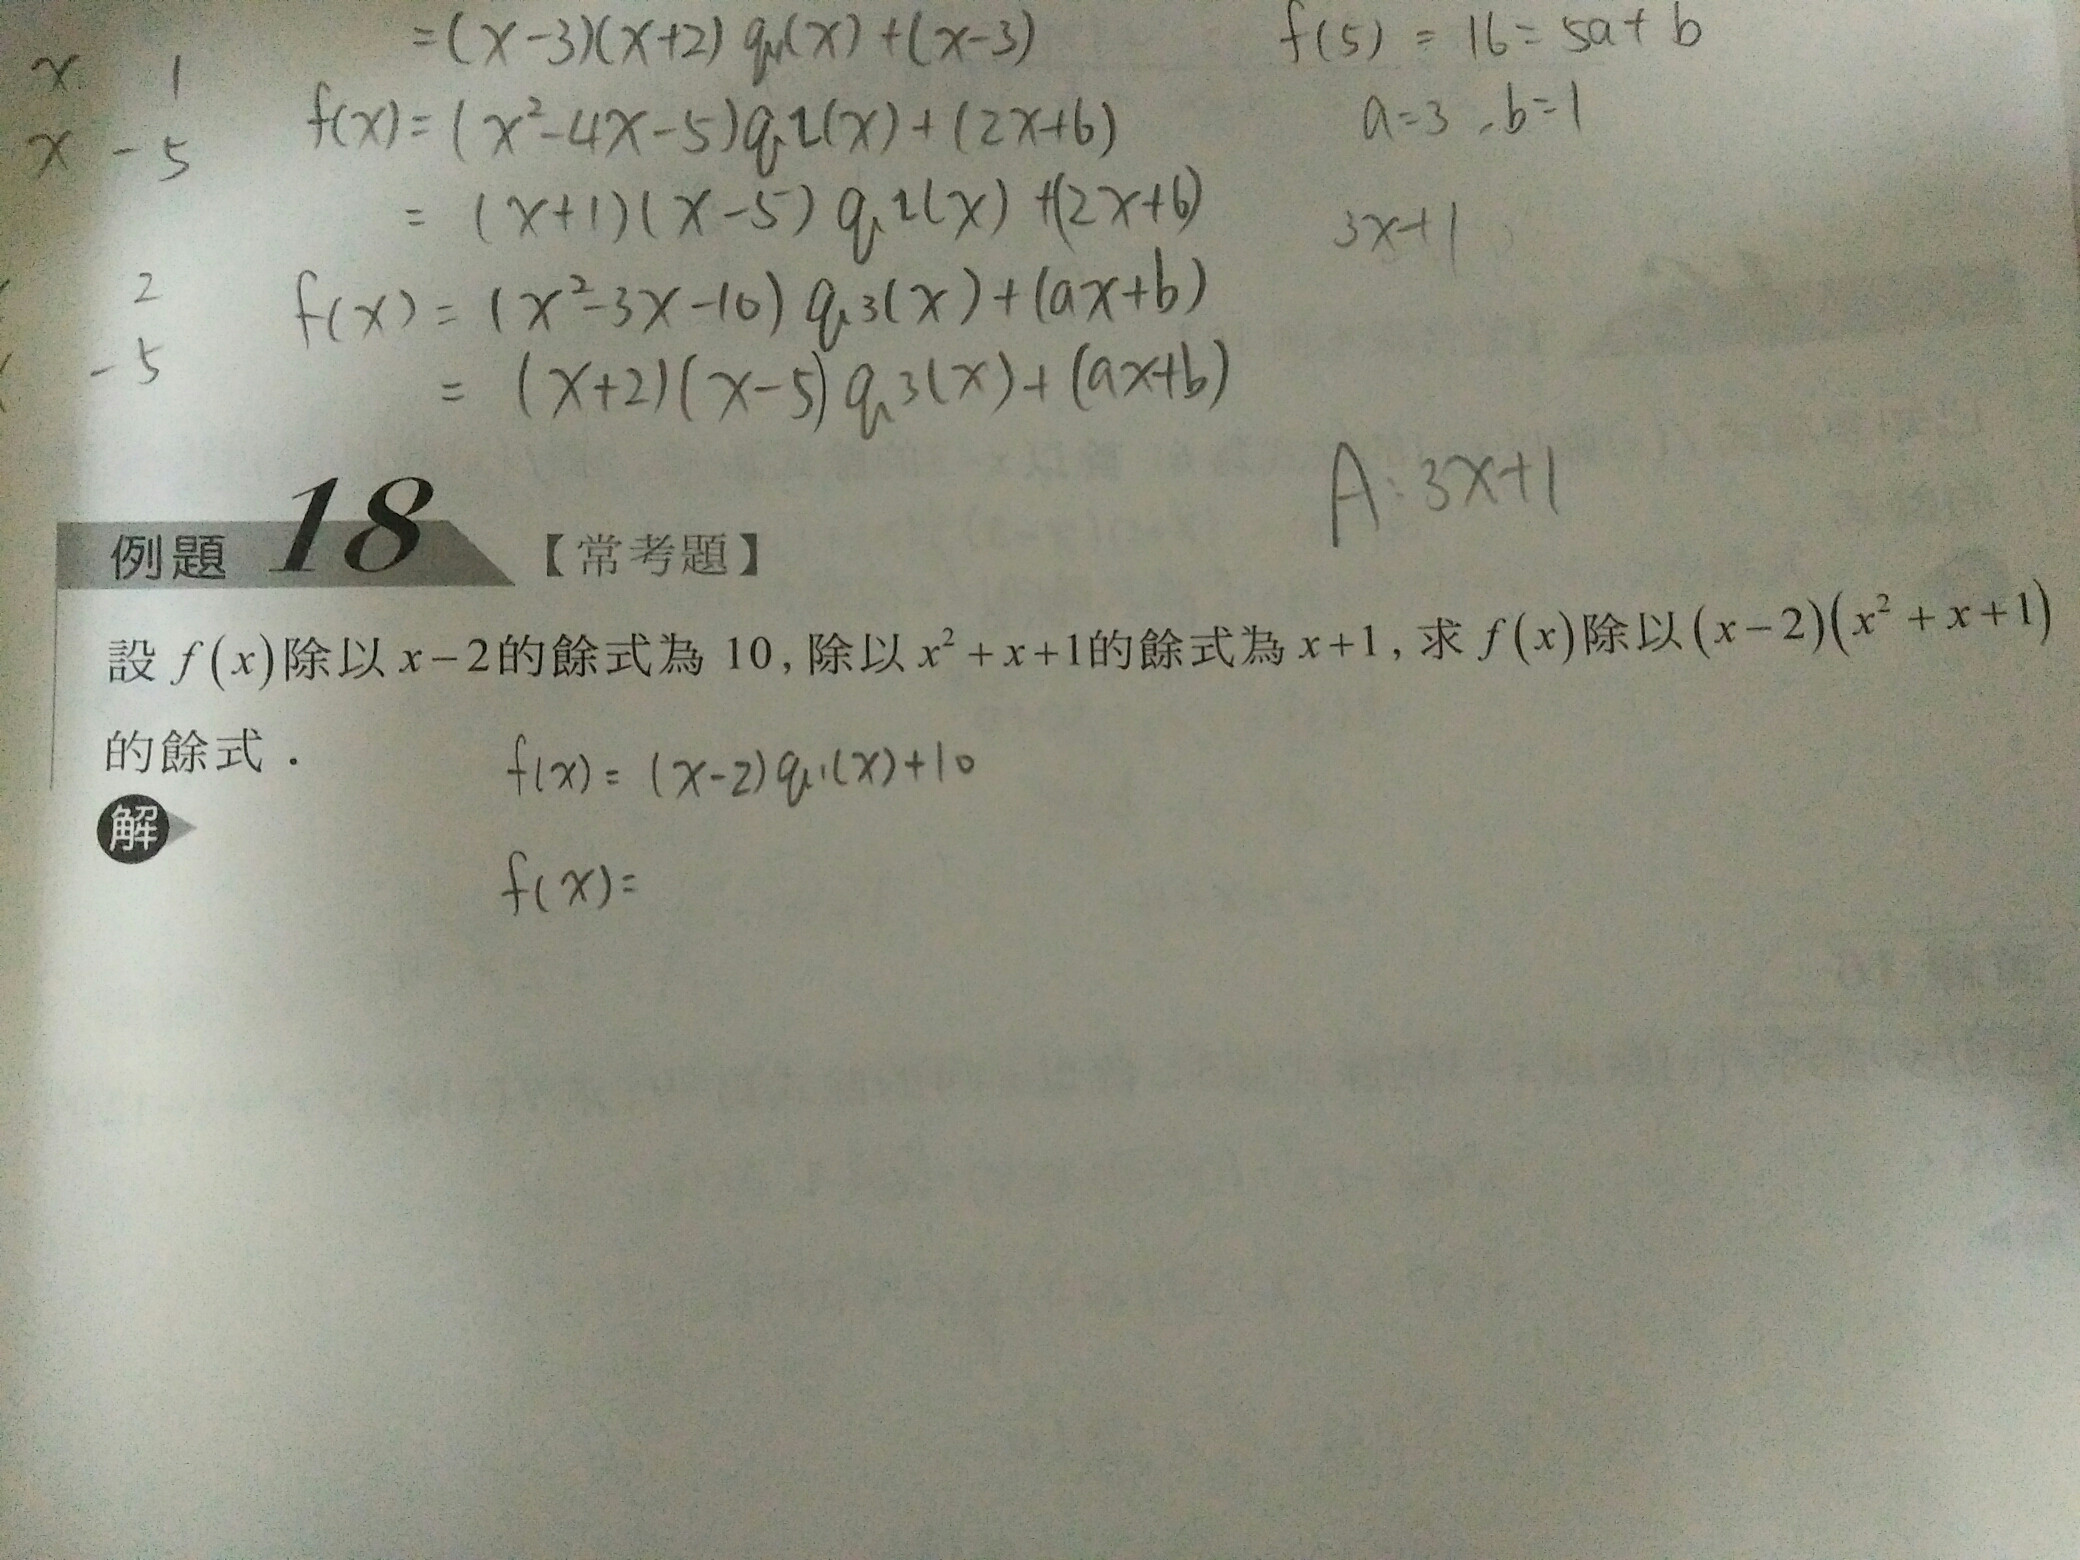 =(x-3)(x+2)q1(x)+(x-3)
f(5)=16=5a+b
x 1
x -5
f(x)=(x²-4x-5)q2(x)+(2x+6)
a=3,b=1
=(x+1)(x-5)q2(x)+(2x+6)
3x+1
2
-5
f(x)=(x²-3x-10)q3(x)+(ax+b)
=(x+2)(x-5)q3(x)+(ax+b)
A:3x+1
例題 18 【常考題】
設 f(x)除以 x-2的餘式為 10,除以 x²+x+1的餘式為 x+1,求 f(x)除以(x-2)(x²+x+1)
的餘式.
f(x)=(x-2)q1(x)+10
解
f(x)=